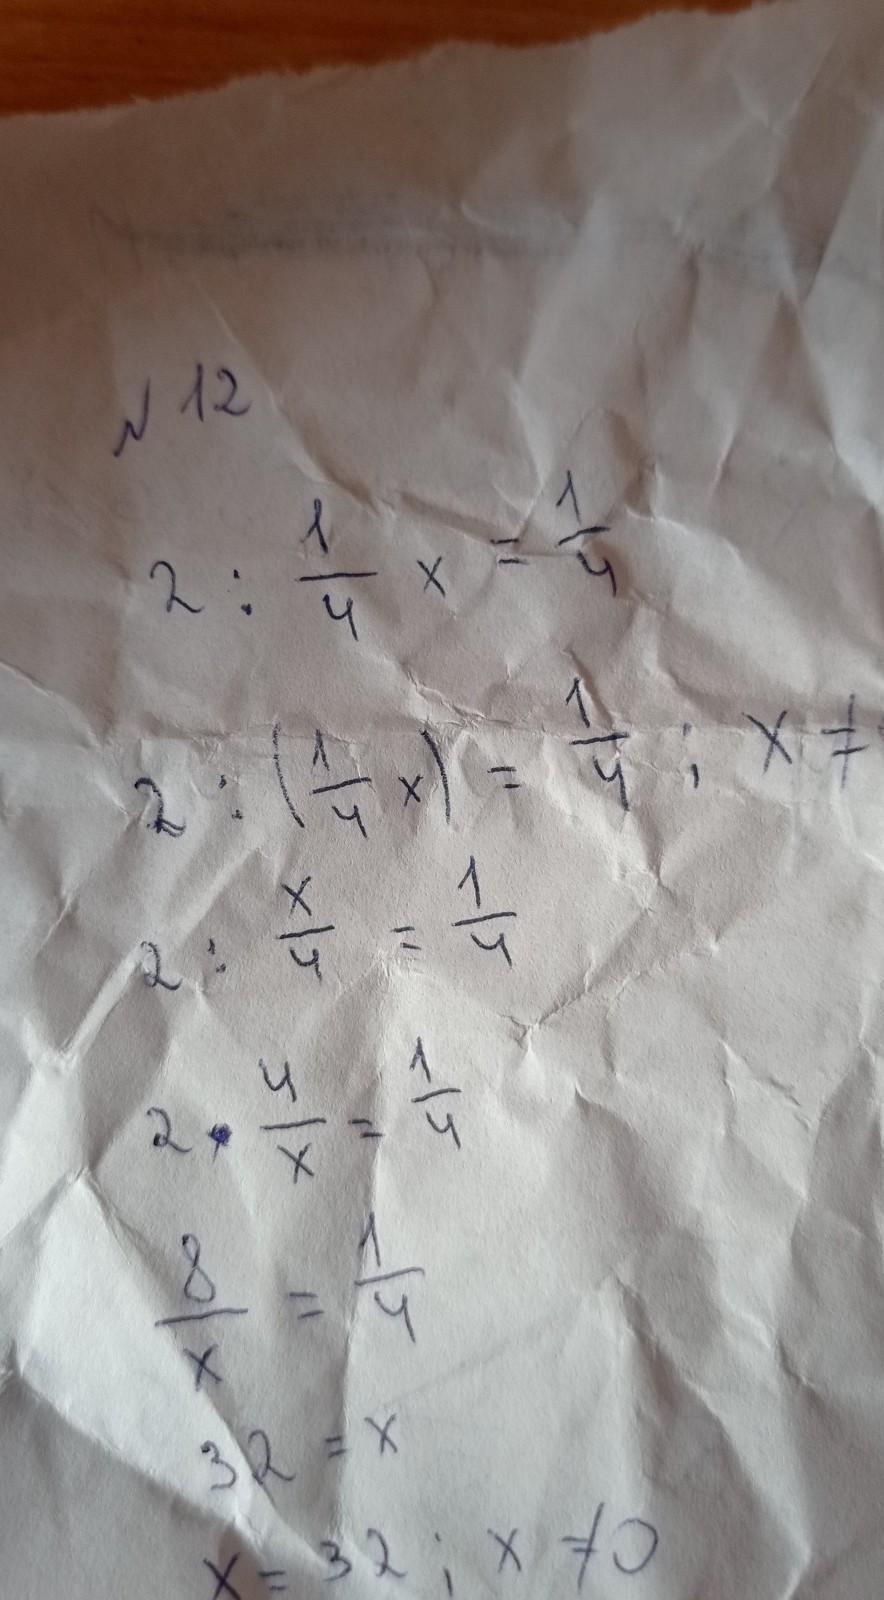 N 12
2 : 1/4 x = 1/4
2 : (1/4 x) = 1/4 ; x ≠
2 : x/4 = 1/4
2 • 4/x = 1/4
8/x = 1/4
32 = x
x = 32 ; x ≠ 0